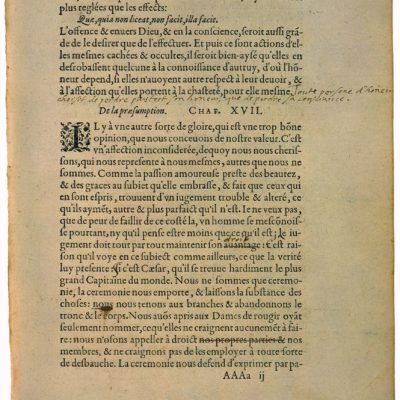 plus reglées que les effects:
Quæ, quia non liceat, non facit, illa facit.
L'offence & enuers Dieu, & en la conscience, seroit aussi grã-
de de le desirer que de l'effectuer. Et puis ce sont actions d'el-
les mesmes cachées & occultes, il seroit bien-aysé qu'elles en
desrobassent quelcune à la connoissance d'autruy, d'où l'hõ-
neur depend, si elles n'auoyent autre respect à leur deuoir, &
à l'affection qu'elles portent à la chasteté, pour elle mesme. Toute persone d'honeur
choisit de perdre plustost son honeur, que de perdre sa consciance.
De la præsumption. CHAP. XVII.
IL y à vne autre sorte de gloire, qui est vne trop bõne
opinion, que nous conceuons de nostre valeur. C'est
vn'affection inconsiderée, dequoy nous nous cheris-
sons, qui nous represente à nous mesmes, autres que nous ne
sommes. Comme la passion amoureuse preste des beautez,
& des graces au subiet qu'elle embrasse, & fait que ceux qui
en sont espris, trouuent d'vn iugement trouble & alteré, ce
qu'ils ayment, autre & plus parfaict qu'il n'est. Ie ne veux pas,
que de peur de faillir de ce costé la, vn homme se mesconois-
se pourtant, ny qu'il pense estre moins que ce qu'il est; le iu-
gement doit tout par tout maintenir son auantage: droit C'est rai-
son qu'il voye en ce subiect comme ailleurs, ce que la verité
luy presente: si c'est Cæsar, qu'il se treuue hardiment le plus
grand Capitaine du monde. Nous ne sommes que ceremo-
nie, la ceremonie nous emporte, & laissons la substance des
choses: nous nous tenons aux branches & abandonnons le
tronc & le corps. Nous auõs apris aux Dames de rougir oyãt
seulement nommer, ce qu'elles ne craignent aucunemẽt à fai-
re: nous n'osons appeller à droict nos propres parties & nos
membres, & ne craignons pas de les employer à toute sorte
de desbauche. La ceremonie nous defend d'exprimer par pa-
AAAa ij